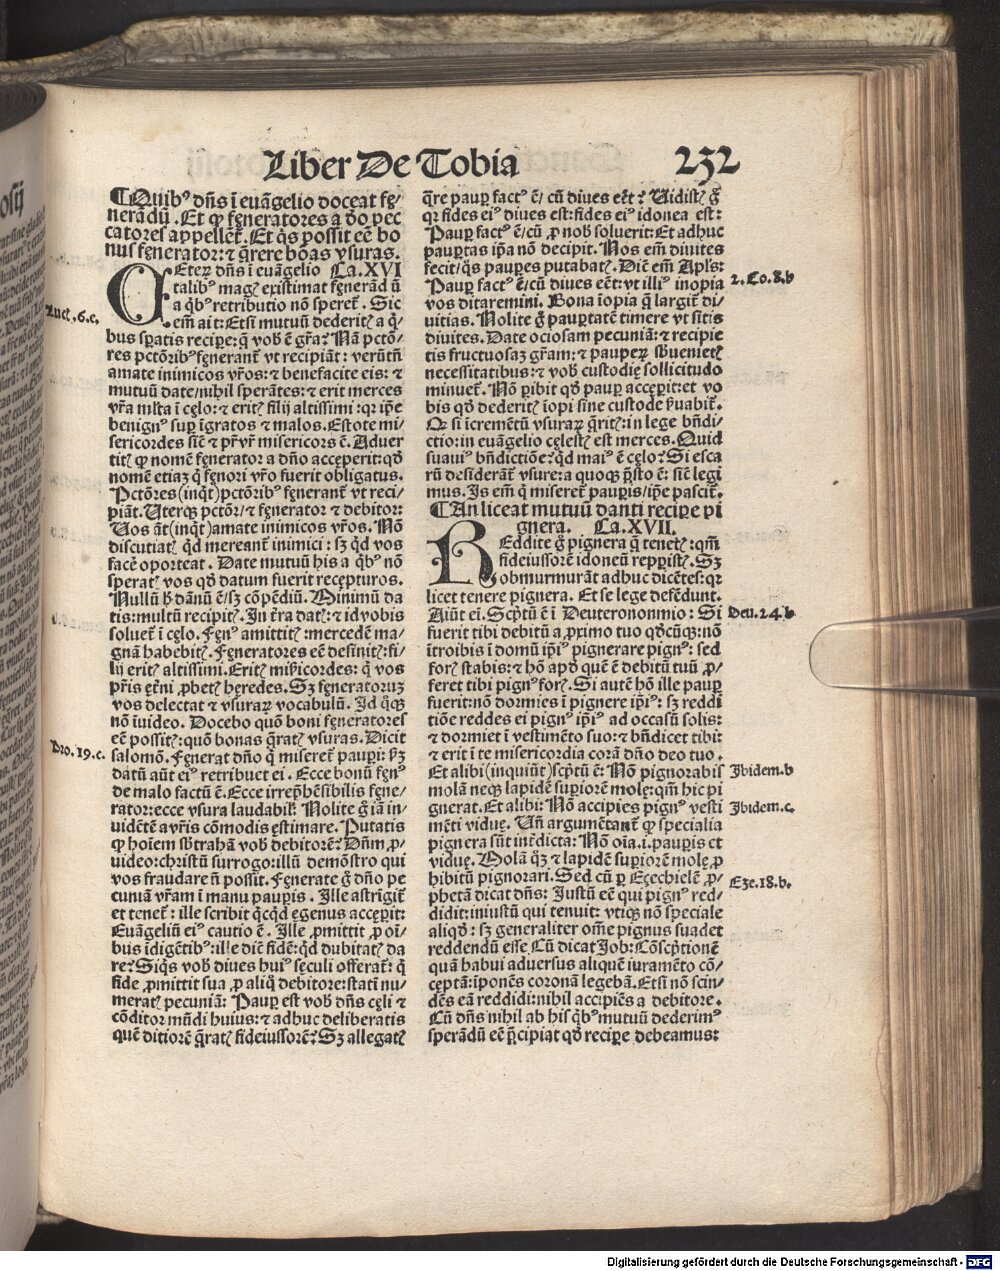 Liber De Tobia 232
¶Quibꝰ dn̄s ī euāgelio doceat fę/
nerādū. Et ꝙ feneratores a ꝺo pec
catores appellēt̄. Et q̄s possit eē bo
nus fenerator: ⁊ q̄rere bōas vsuras.
CEteꝝ dn̄s ī euāgelio Ca.XVI
talibꝰ magꝭ existimat fęnerād ū
a qbꝰ retributio nō speret̄. Sic
em̄ ait: Etsi mutuū dederitꝭ a q̄/
bus sꝑatis recipe: q̄ vob ē gr̄a? Nā pctō/
res pctōribꝰ fęnerant̄ vt recipiāt: verūtn̄
amate inimicos vr̄os: ⁊ benefacite eis: ⁊
mutuū date/nihil sperātes: ⁊ erit merces
vr̄a ml̄ta ī cęlo: ⁊ eritꝭ filij altissimi: qꝛ ip̄e
benignꝰ suꝑ īgratos ⁊ malos. Estote mi/
sericordes sic̄ ⁊ pr̄ vr̄ misericors ē. Aduer
titꝭ ꝙ nomē fenerator a dn̄o acceperit: qd̄
nomē etiaꝫ q̄ fenori vr̄o fuerit obligatus.
Pctōres (inqt̄) pctōribꝰ fęnerant̄ vt reci/
piāt. Uterqꝫ pctōr/ ⁊ fęnerator ⁊ debitor:
Uos āt (inqt̄) amate inimicos vr̄os. Nō
discutiatꝭ qd̄ mereant̄ inimici: sꝫ qd̄ vos
facē oporteat. Date mutuū his a qbꝰ nō
speratꝭ vos qd̄ datum fuerit recepturos.
Nullū h̄ dānū ē/sꝫ cōpēdiū. Minimū da
tis: multū recipitꝭ. In tr̄a datꝭ: ⁊ id vobis
soluet̄ ī cęlo. Fęnꝰ amittitꝭ: mercedē ma/
gnā habebitꝭ. Fęneratores eē definitꝭ: fi/
lij eritꝭ altissimi. Eritꝭ mir̄icordes: q̄ vos
pr̄is et̄ni ꝓbetꝭ hęredes. Sꝫ fęneratoruꝫ
vos delectat ⁊ vsuraꝝ vocabulū. Id q̄qꝫ
nō īuideo. Docebo quō boni fęneratores
eē possitꝭ: quō bonas q̄ratꝭ vsuras. Dicit
salomō. Fęnerat dn̄o q̄ miseret̄ pauꝑi: ẜꝫ
datū aūt eiꝰ retribuet ei. Ecce bonū fęnꝰ
de malo factū ē. Ecce irrep̄hēsibilis fęne/
rator: ecce vsura laudabilꝭ. Nolite g̊ iā in/
uidētē avr̄is cōmodis ęstimare. Putatis
ꝙ hoīem sb̄trahā vob debitorē? Dn̄m ꝓ/
uideo: christū surrogo: illū demōstro qui
vos fraudare n̄ possit. Fęnerate g̊ dn̄o pe
cuniā vr̄am ī manu pauꝑis. Ille astrigit̄
et tenet̄: ille scribit qc̄qd̄ ęgenus acceꝑit:
Euāgeliū eiꝰ cautio ē. Ille ꝓmittit ꝓ oī/
bus īdigētibꝰ: ille diē fidē: qd̄ dubitatꝭ da
re? Siqs vob̄ diues huiꝰ sęculi offerat̄: q̄
fide ꝓmittit sua ꝓ aliq̄ debitore: statī nu/
meratꝭ pecuniā: Pauꝑ est vob̄ dn̄s cęli ⁊
cōditor mūdi huius: ⁊ adhuc deliberatis
quē ditiorē q̄ratꝭ fideiussorē? Sꝫ allegatꝭ
q̄re pauꝑ factꝰ ē/ cū diues eēt? Uidistꝭ g̊
qꝛ fides eiꝰ diues est: fides eiꝰ idonea est:
Pauꝑ factꝰ ē/cū ꝓ nob̄ soluerit: Et adhuc
pauꝑtas ip̄a nō decipit. Nos em̄ diuites
fecit/q̄s pauꝑes putabatꝭ. Diē em̄ Apl̄s:
Pauꝑ factꝰ ē/cū diues eēt: vt illiꝰ inopia
vos ditaremini. Bona īopia q̄ largit̄ di/
uitias. Nolite g̊ pauꝑtatē timere vt sitis
diuites. Date ociosam pecuniā: ⁊ recipie
tis fructuosaꝫ gr̄am: ⁊ pauꝑeꝝ sb̄uenietꝭ
necessitatibus: ⁊ vob̄ custodię sollicitudo
minuet̄. Nō ꝑibit qd̄ pauꝑ acceꝑit: et vo
bis qd̄ dederitꝭ īopi sine custode ẜuabit̄.
Qꝛ si icremētū vsuraꝝ q̄ritꝭ: in lege bn̄di/
ctio: in euāgelio cęlestꝭ est merces. Quid
suauiꝰ bn̄dictiōe? qd̄ maiꝰ ē cęlo? Si esca
rū desiderāt̄ vsurę: a quoqꝫ p̄sto ē: sic̄ legi
mus. Is em̄ q̄ miseret̄ pauꝑis/ip̄e pascit̄.
¶An liceat mutuū danti recipe pi
gnera. Ca.XVII.
REddite g̊ pignera q̄ tenetꝭ: qm̄
fideiussorē idoneū reppistꝭ. Sꝫ
obmurmurāt adhuc dicētes: qꝛ
licet tenere pignera. Et se lege defēdunt.
Aiūt ei. Scp̄tū ē ī Deuterononmio: Si
fuerit tibi debitū a ꝓximo tuo qd̄cūqꝫ: nō
ītroibis ī domū ip̄iꝰ pignerare pignꝰ: sed
forꝭ stabis: ⁊ hō apd̄ quē ē debitū tuū ꝓ/
feret tibi pignꝰ forꝭ. Si autē hō ille pauꝑ
fuerit: nō dormies ī pignere ip̄iꝰ: sꝫ reddi
tiōe reddes ei pignꝰ ip̄iꝰ ad occasū solis:
⁊ dormiet ī vestimēto suo: ⁊ bn̄dicet tibi:
⁊ erit ī te misericordia corā dn̄o deo tuo.
Et alibi (inquiūt) scp̄tū ē: Nō pignorabis
molā neqꝫ lapidē suꝑiorē molę: qm̄ hic pi
gnerat. Et alibi: Nō accipies pignꝰ vesti
mēti viduę. Un̄ argumētant̄ ꝙ specialia
pignera sūt int̄dicta: Nō oīa.i.pauꝑis et
viduę. Molā q̄ꝫ ⁊ lapidē suꝑiorē molę ꝓ
hibitū pignorari. Sed cū ꝑ Eęchielē ꝓ/
phetā dicat dn̄s: Justū eē qui pignꝰ red/
didit: iniustū qui tenuit: vtiqꝫ nō speciale
aliqd̄: sꝫ generaliter om̄e pignus suadet
reddendū esse Cū dicat Job: Cōscp̄tionē
quā habui adversus aliquē iuramēto cō/
cęptā: īponēs coronā legebā. Etsi nō scin/
dēs eā reddidi: nihil accipiēs a debitore.
Cū dn̄s nihil ab his qbꝰ mutuū dederimꝰ
sperādū eē p̄cipiat qd̄ recipe debeamus:
Luct.6.c.
Pro.19.c.
2.Co.8.b
Deu.24.b
Ibidem.b
Ibidem.c.
Eze.18.b.
Digitalisierung gefördert durch die Deutsche Forschungsgemeinschaft - DFG